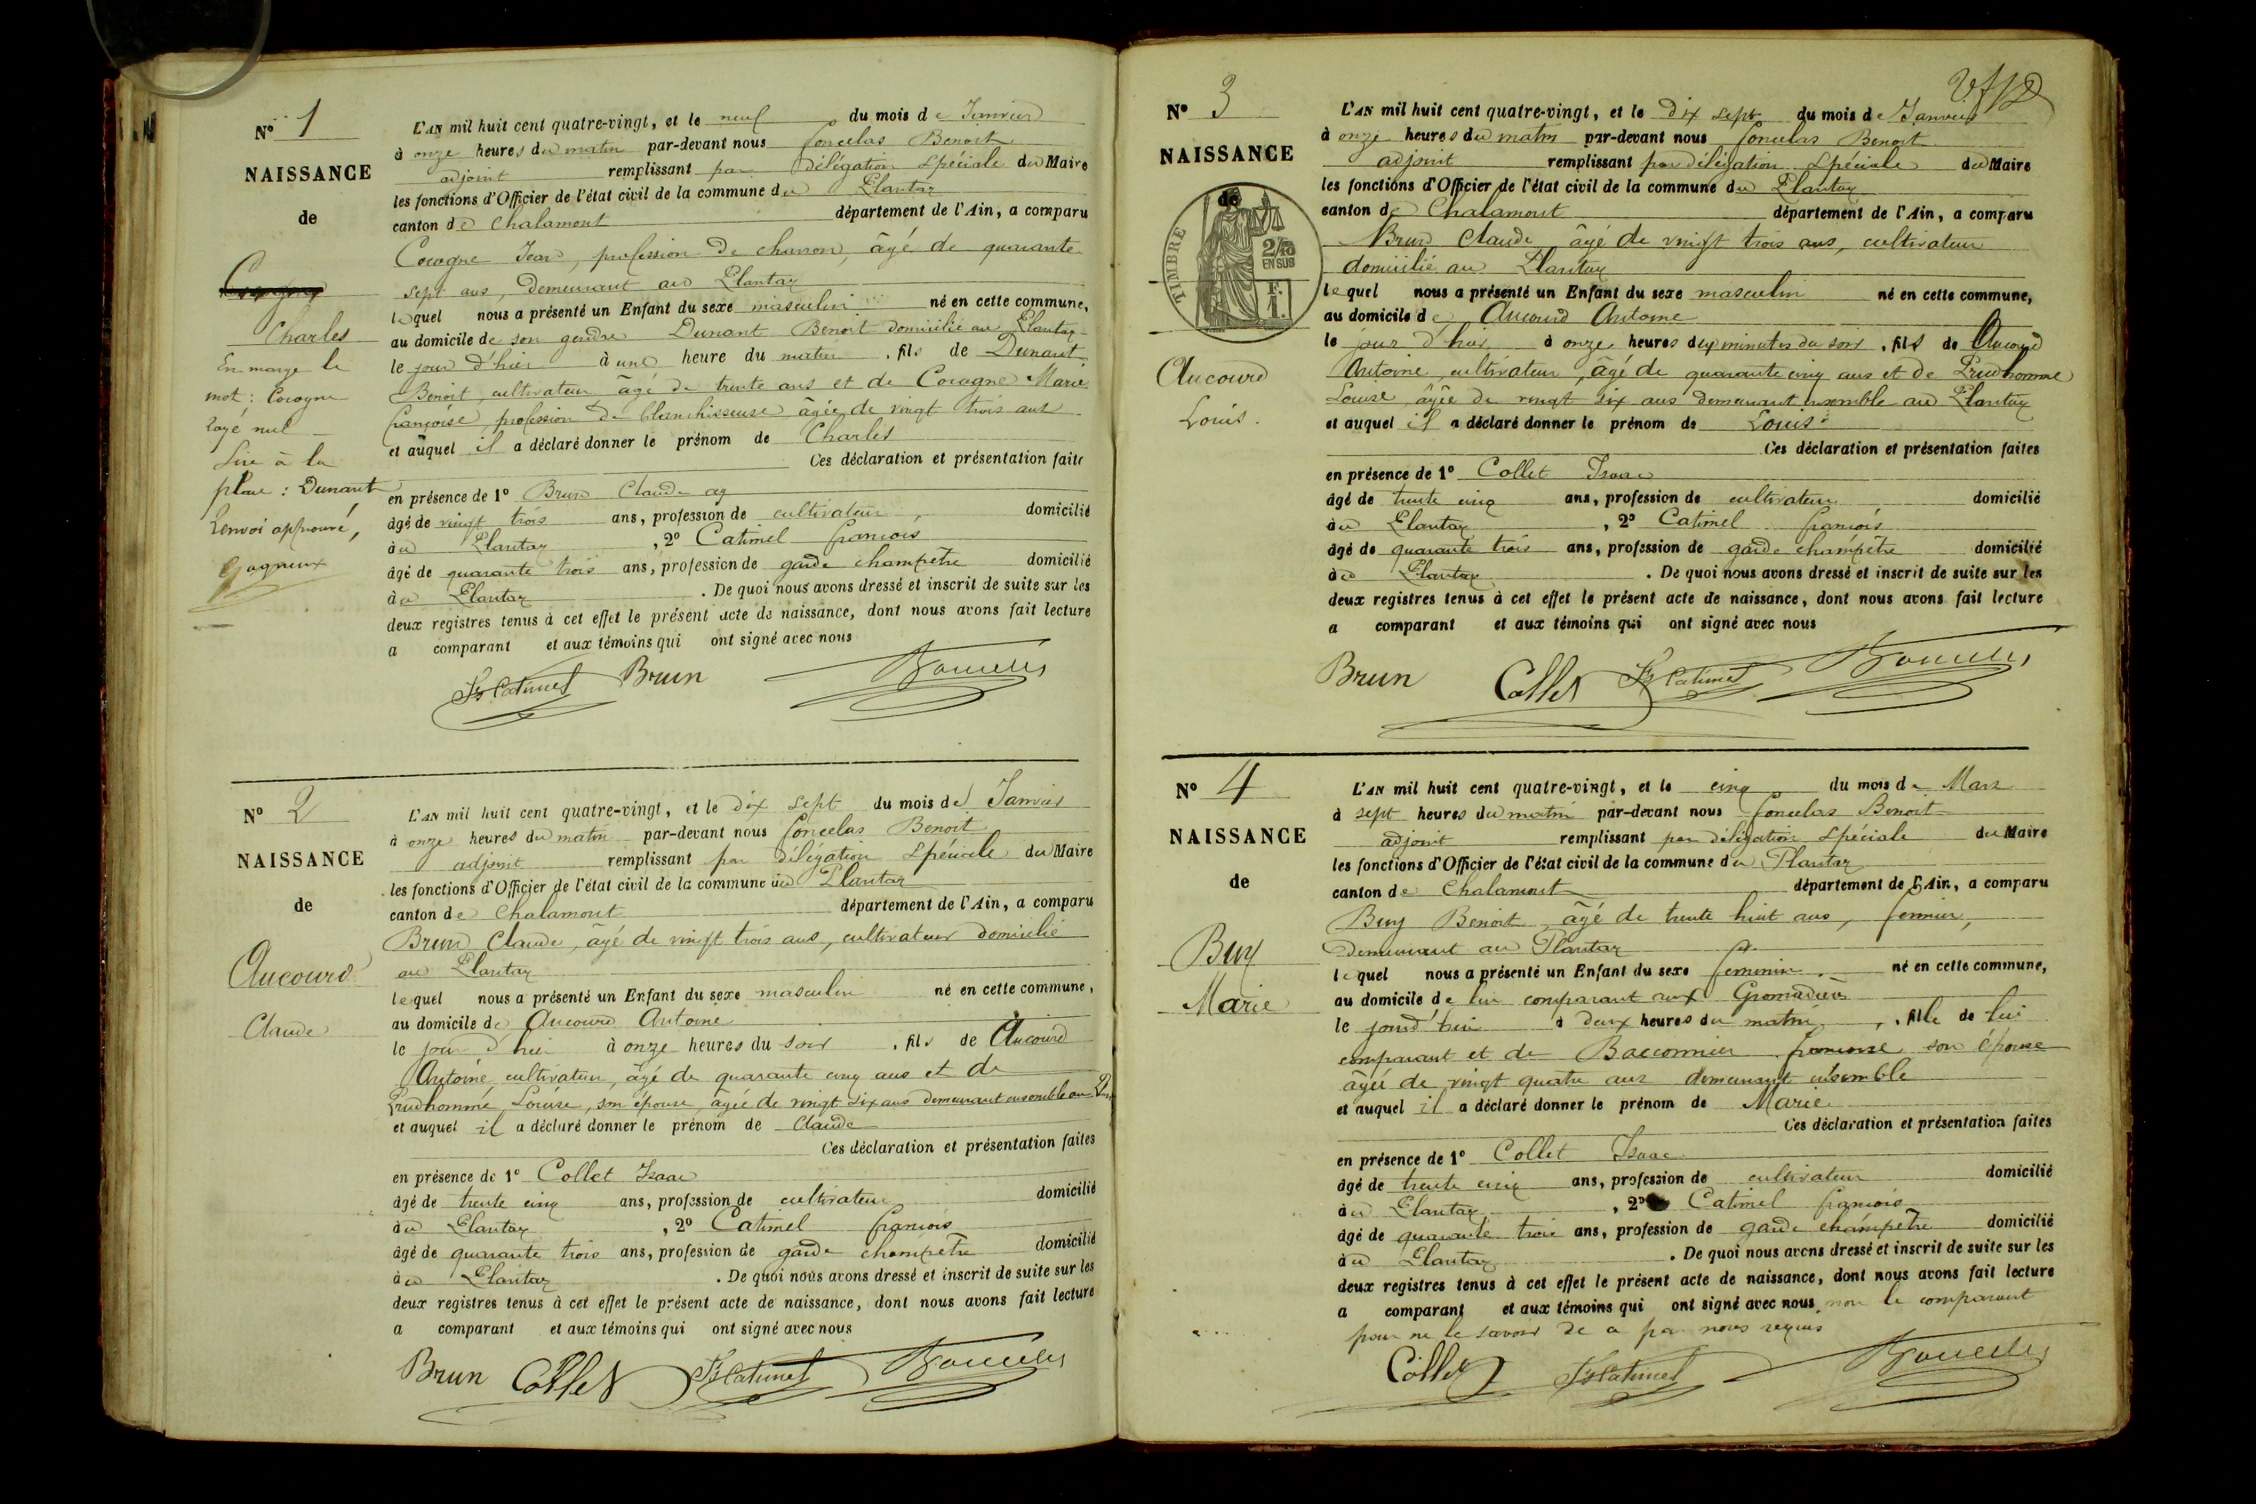 N° 1
NAISSANCE
de
Charles
En marge le
mot : Cocogne
rayé nul
Lire à la
place : Dunant
Renvoi approuvé,
L'AN mil huit cent quatre-vingt, et le neuf du mois de Janvier
à onze heures du matin par-devant nous foncelas Benoit
adjoint remplissant par délégation spéciale du Maire
les fonctions d'Officier de l'état civil de la commune du Plantay
canton de Chalamont département de l'Ain, a comparu
Cocogne Jean, profession de charron, âgé de quarante
sept ans, demeurant au Plantay
lequel nous a présenté un Enfant du sexe masculin né en cette commune,
au domicile de son gendre Dunant Benoit domicilié au Plantay
le jour d'hier à une heure du matin, fils de Dunant
Benoit, cultivateur âgé de trente ans et de Cocogne Marie
françoise, profession de blanchisseuse âgée de vingt trois ans
et auquel il a déclaré donner le prénom de Charles
Ces déclaration et présentation faite
en présence de 1° Brun Claude ag
âgé de vingt trois ans, profession de cultivateur domicilié
au Plantay, 2° Catimel françois
âgé de quarante trois ans, profession de garde champêtre domicilié
au Plantay. De quoi nous avons dressé et inscrit de suite sur les
deux registres tenus à cet effet le présent acte de naissance, dont nous avons fait lecture
a comparant et aux témoins qui ont signé avec nous
Fs Catimel Brun
N° 2
NAISSANCE
de
Aucourd
Claude
L'AN mil huit cent quatre-vingt, et le dix sept du mois de Janvier
à onze heures du matin par-devant nous foncelas Benoit
adjoint remplissant par délégation spéciale du Maire
les fonctions d'Officier de l'état civil de la commune du Plantay
canton de Chalamont département de l'Ain, a comparu
Brun Claude, âgé de vingt trois ans, cultivateur domicilié
au Plantay
lequel nous a présenté un Enfant du sexe masculin né en cette commune,
au domicile de Aucourd Antoine
le jour d'hier à onze heures du soir, fils de Aucourd
Antoine, cultivateur, âgé de quarante cinq ans et de
Prudhomme Louise, son épouse, âgée de vingt six ans demeurant ensemble au
et auquel il a déclaré donner le prénom de Claude
Ces déclaration et présentation faites
en présence de 1° Collet Isaac
âgé de trente cinq ans, profession de cultivateur domicilié
au Plantay, 2° Catimel françois
âgé de quarante trois ans, profession de garde champêtre domicilié
au Plantay. De quoi nous avons dressé et inscrit de suite sur les
deux registres tenus à cet effet le présent acte de naissance, dont nous avons fait lecture
a comparant et aux témoins qui ont signé avec nous
Brun Collet Fs Catimel
N° 3
NAISSANCE
de
TIMBRE
2/10
EN SUS
F.
1.
Aucourd
Louis.
L'AN mil huit cent quatre-vingt, et le dix sept du mois de Janvier
à onze heures du matin par-devant nous foncelas Benoit
adjoint remplissant par délégation spéciale du Maire
les fonctions d'Officier de l'état civil de la commune du Plantay
canton de Chalamont département de l'Ain, a comparu
Brun Claude, âgé de vingt trois ans, cultivateur
domicilié au Plantay
lequel nous a présenté un Enfant du sexe masculin né en cette commune,
au domicile de Aucourd Antoine
le jour d'hier à onze heures dix minutes du soir, fils de Aucourd
Antoine, cultivateur, âgé de quarante cinq ans et de Prudhomme
Louise, âgée de vingt six ans demeurant ensemble au Plantay
et auquel il a déclaré donner le prénom de Louis
Ces déclaration et présentation faites
en présence de 1° Collet Isaac
âgé de trente cinq ans, profession de cultivateur domicilié
au Plantay, 2° Catimel françois
âgé de quarante trois ans, profession de garde champêtre domicilié
au Plantay. De quoi nous avons dressé et inscrit de suite sur les
deux registres tenus à cet effet le présent acte de naissance, dont nous avons fait lecture
a comparant et aux témoins qui ont signé avec nous
Brun Collet Fs Catimel
N° 4
NAISSANCE
de
Buy
Marie
L'AN mil huit cent quatre-vingt, et le cinq du mois de Mars
à sept heures du matin par-devant nous foncelas Benoit
adjoint remplissant par délégation spéciale du Maire
les fonctions d'Officier de l'état civil de la commune du Plantay
canton de Chalamont département de l'Ain, a comparu
Buy Benoit, âgé de trente huit ans, fermier,
demeurant au Plantay
lequel nous a présenté un Enfant du sexe feminin né en cette commune,
au domicile de lui comparant aux
le jourd'hui à deux heures du matin, fille de lui
comparant et de Bacconnier françoise son épouse
âgée de vingt quatre ans demeurant ensemble
et auquel il a déclaré donner le prénom de Marie
Ces déclaration et présentation faites
en présence de 1° Collet Isaac
âgé de trente cinq ans, profession de cultivateur domicilié
au Plantay, 2° Catimel françois
âgé de quarante trois ans, profession de garde champêtre domicilié
au Plantay. De quoi nous avons dressé et inscrit de suite sur les
deux registres tenus à cet effet le présent acte de naissance, dont nous avons fait lecture
a comparant et aux témoins qui ont signé avec nous, non le comparant
pour ne le savoir de ce par nous requis
Collet Fs Catimel